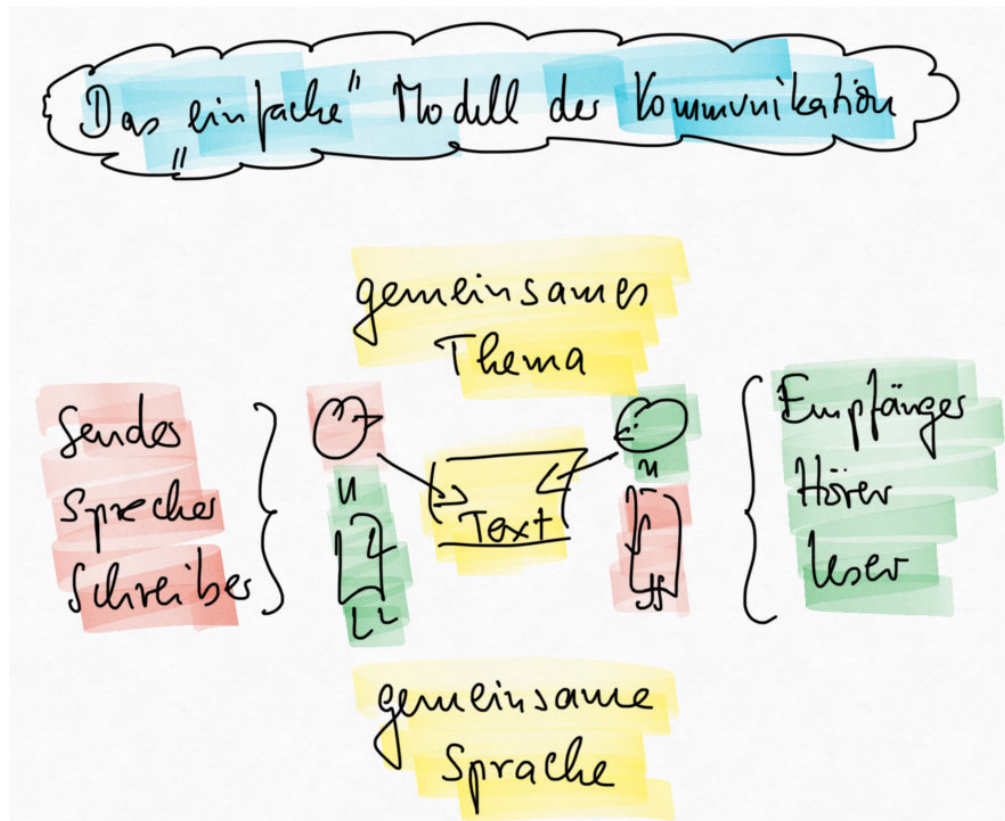 Das „einfache" Modell der Kommunikation
gemeinsames
Thema
Sender
Sprecher
Schreiber
Text
Empfänger
Hörer
Leser
gemeinsame
Sprache